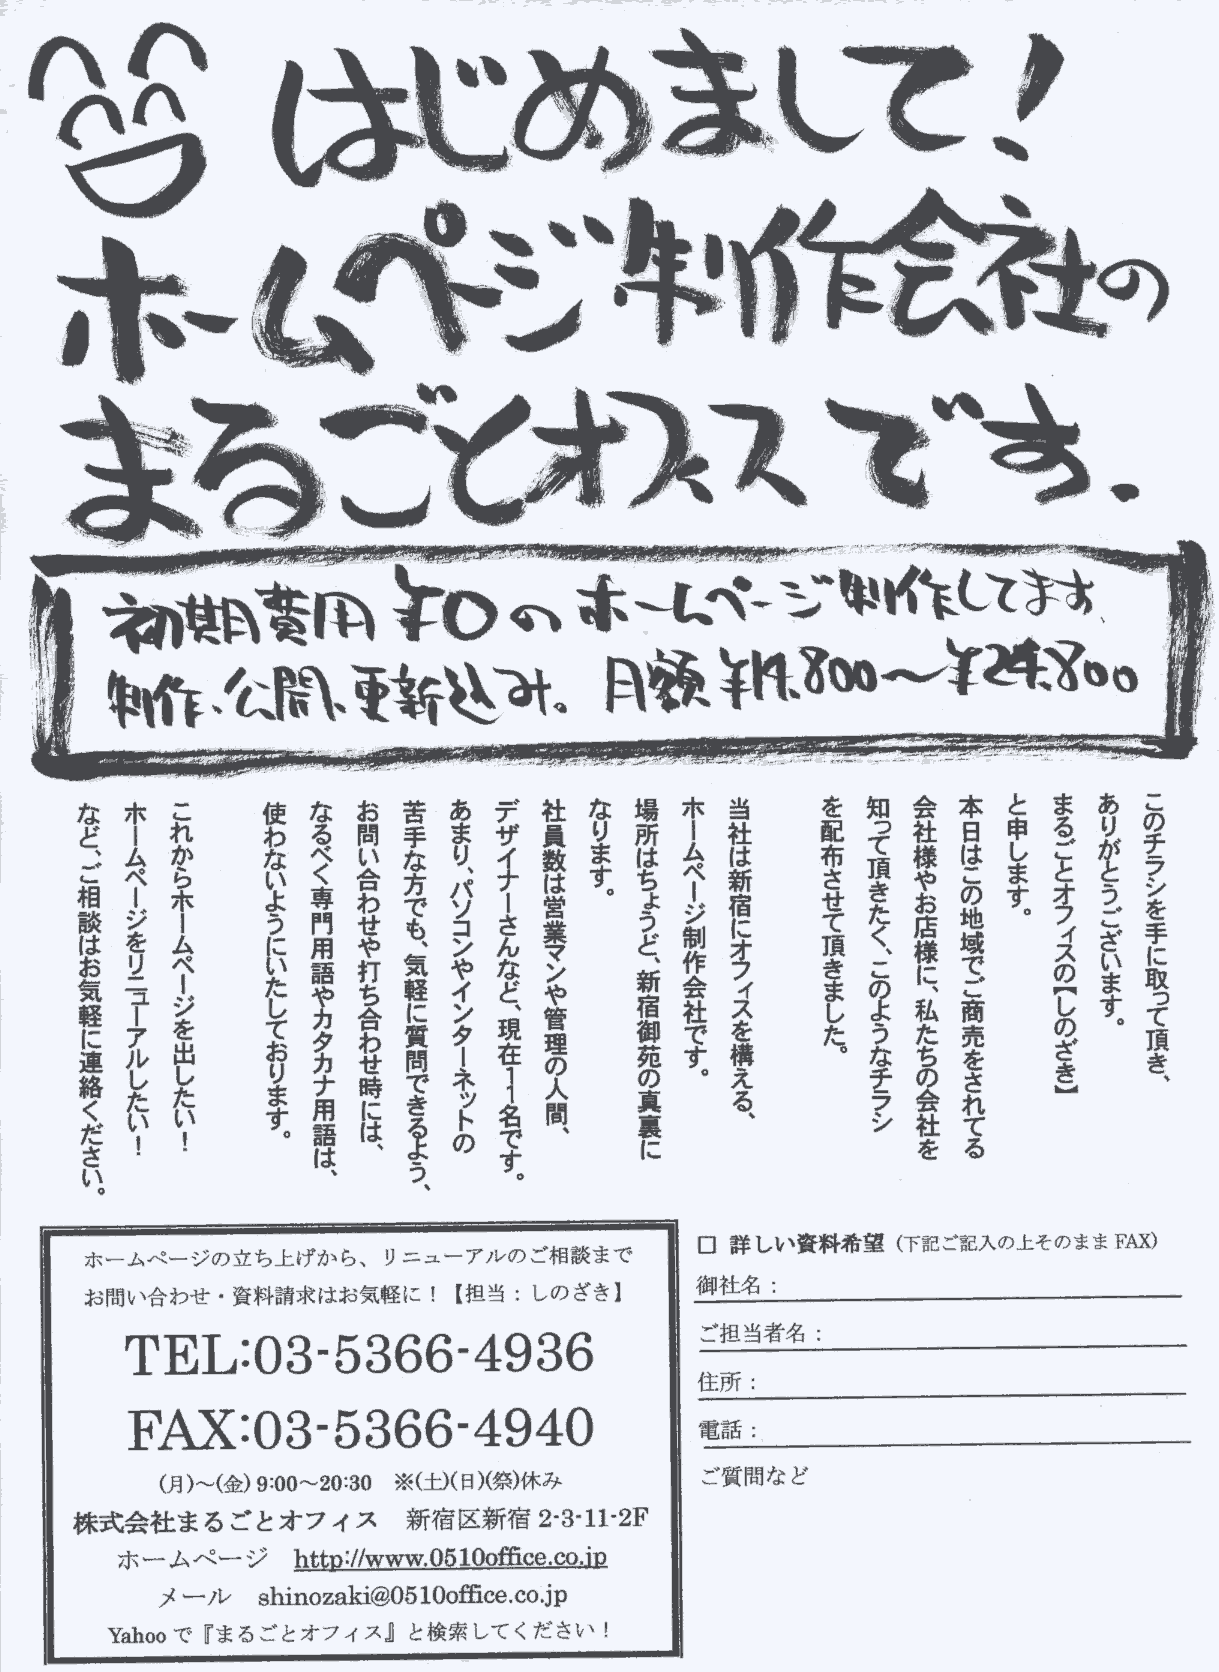 はじめまして!
ホームページ制作会社の
まるごとオフィスです.
初期費用¥0のホームページ制作してます、
制作、公開、更新込み。月額¥14,800〜¥24,800
このチラシを手に取って頂き、
ありがとうございます。
まるごとオフィスの【しのざき】
と申します。
本日はこの地域でご商売をされてる
会社様やお店様に、私たちの会社を
知って頂きたく、このようなチラシ
を配布させて頂きました。
当社は新宿にオフィスを構える、
ホームページ制作会社です。
場所はちょうど、新宿御苑の真裏に
なります。
社員数は営業マンや管理の人間、
デザイナーさんなど、現在11名です。
あまり、パソコンやインターネットの
苦手な方でも、気軽に質問できるよう、
お問い合わせや打ち合わせ時には、
なるべく専門用語やカタカナ用語は、
使わないようにいたしております。
これからホームページを出したい!
ホームページをリニューアルしたい!
など、ご相談はお気軽に連絡ください。
ホームページの立ち上げから、リニューアルのご相談まで
お問い合わせ・資料請求はお気軽に!【担当:しのざき】
TEL:03-5366-4936
FAX:03-5366-4940
(月)〜(金) 9:00〜20:30 ※(土)(日)(祭)休み
株式会社まるごとオフィス 新宿区新宿 2-3-11-2F
ホームページ http://www.0510office.co.jp
メール shinozaki@0510office.co.jp
Yahoo で『まるごとオフィス』と検索してください!
□ 詳しい資料希望 (下記ご記入の上そのまま FAX)
御社名:
ご担当者名:
住所:
電話:
ご質問など